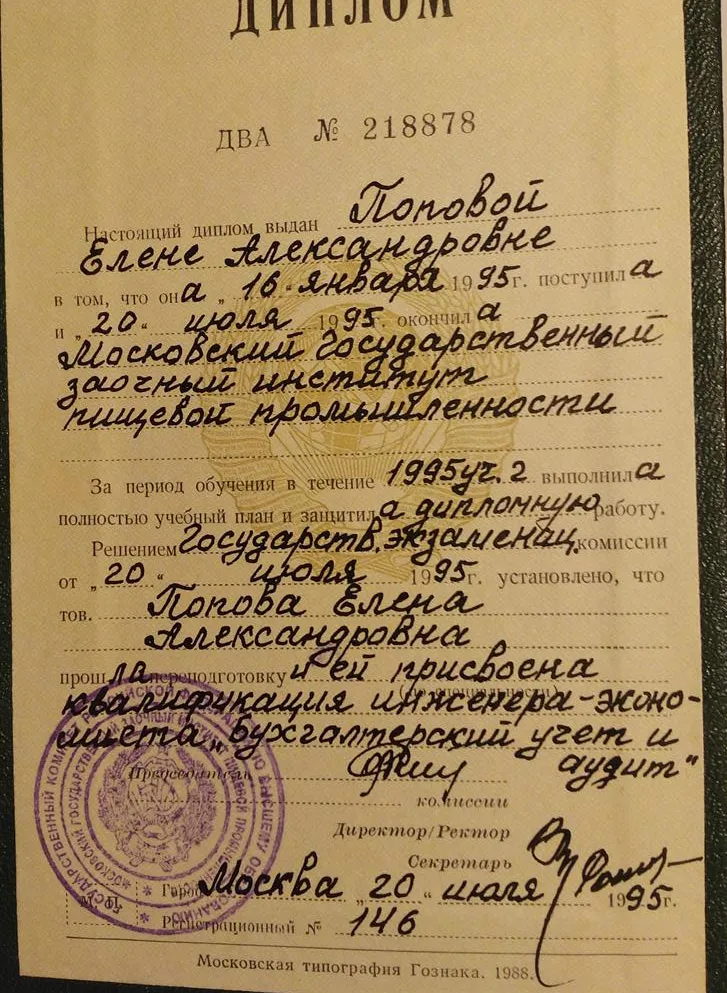 ДИПЛОМ
ДВА № 218878
Настоящий диплом выдан Поповой
Елене Александровне
в том, что она „16" января 1995 г. поступила
и „20" июля 1995 г. окончила
Московский государственный
заочный институт
пищевой промышленности
За период обучения в течение 1995 уч. г. выполнила
полностью учебный план и защитила дипломную работу.
Решением Государств. экзаменац. комиссии
от „20" июля 1995 г. установлено, что
тов. Попова Елена
Александровна
прошла переподготовку и ей присвоена
(по специальности)
квалификация инженера-эконо-
миста „Бухгалтерский учет и
Председатель аудит"
комиссии
Директор/Ректор
Секретарь
Город Москва „20" июля 1995 г.
М. П.
Регистрационный № 146
Московская типография Гознака. 1988.